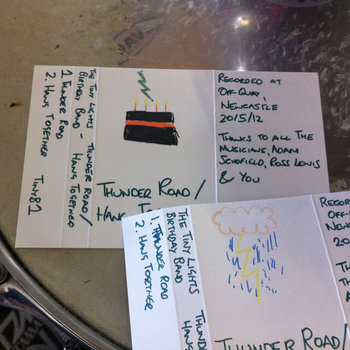 THE TINY LIGHTS
BIRTHDAY BAND -
1 THUNDER ROAD
2. HANG TOGETHER
TINY81
THUNDER ROAD/
HANG TOGETHER
THUNDER ROAD/
HANG T
RECORDED AT
OFF QUAY,
NEWCASTLE
20/5/12
THANKS TO ALL THE
MUSICIANS, ADAM
SCHOFIELD, ROSS LEWIS
& YOU
THE TINY LIGHTS
BIRTHDAY BAND
1. THUNDER ROAD
2. HANG TOGETHER
THUND
HANG
THUNDER ROAD/
RECORD
OFF Q
NEW
20
TH